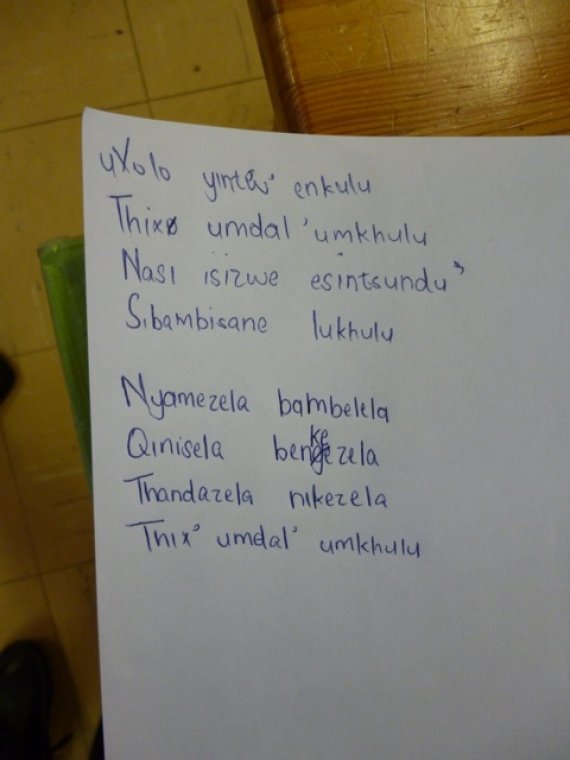 uXolo yinto' enkulu
Thixo umdal 'umkhulu
Nasi isizwe esintsundu"
Sibambisane lukhulu
Nyamezela bambelela
Qinisela benkezela
Thandazela nikezela
Thix' umdal' umkhulu